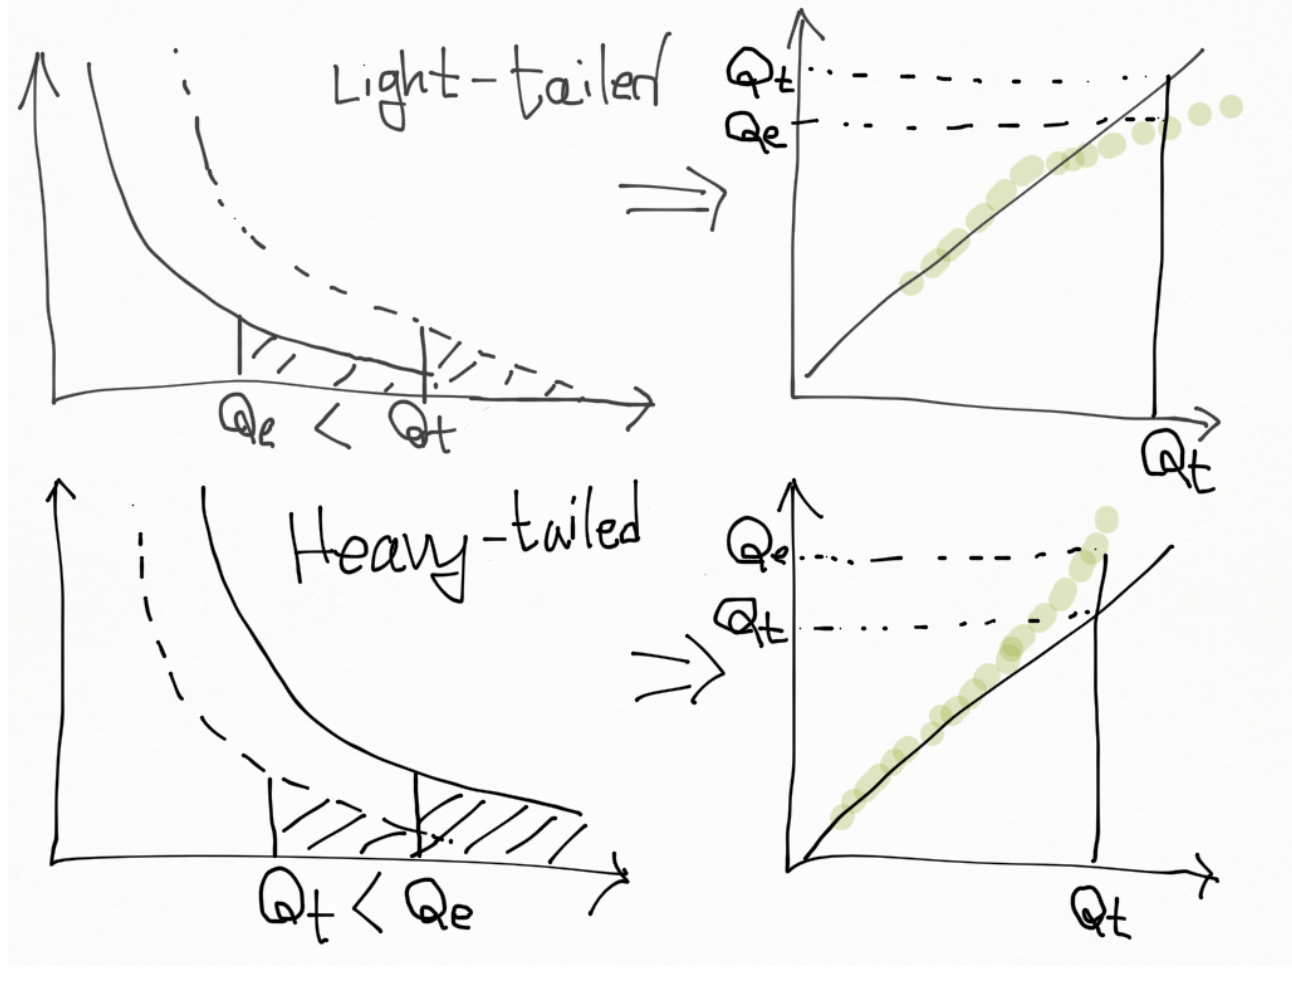 Light-tailed
Qt
Qe
Qe < Qt
Qt
Heavy-tailed
Qe
Qt
Qt < Qe
Qt